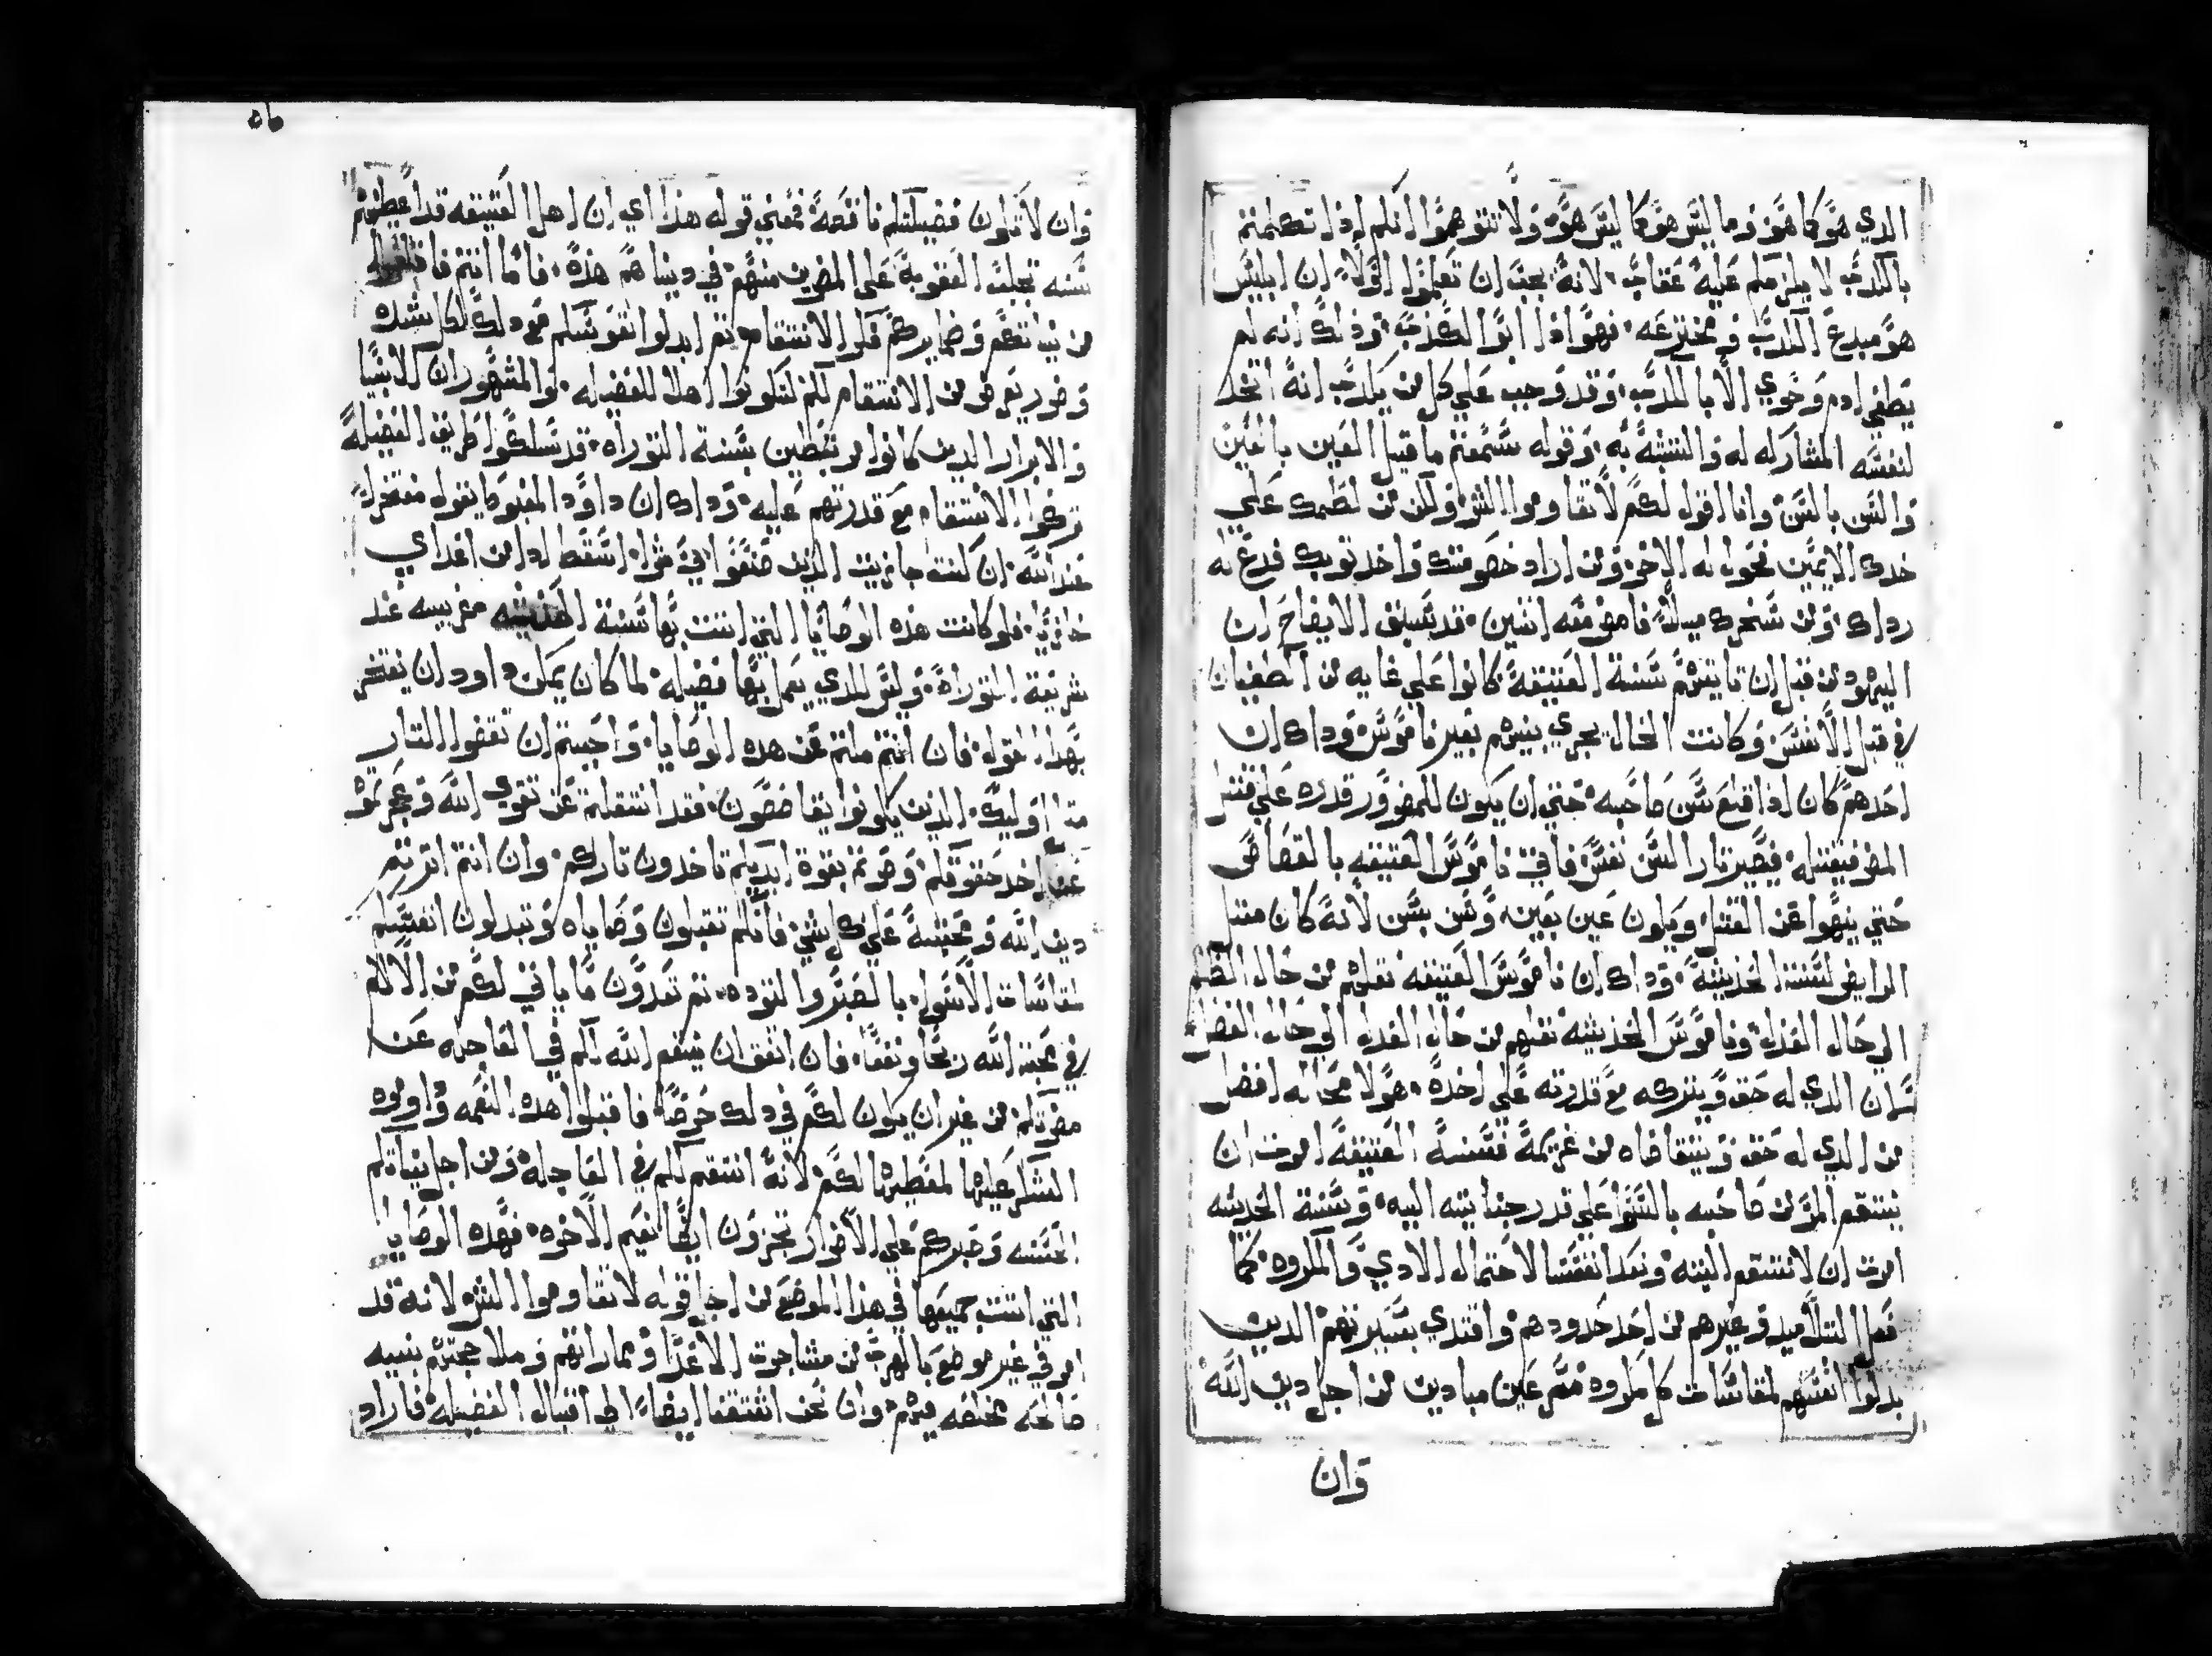 الدي هو كما هو وما ليس هو كما ليس هو ولا تتوهموا انكم اذا تكلمتم
بالكدب لا يلزمكم عليه عقاب لانه يجب ان تعلموا اولا ان ابليس
هو مبدع الكدب ومخترعه فهو اذا ابوا الكذب وذلك انه لم
يطغي ادم وحوي الا بالكدب وقد وجب علي كل من يكدب انه اتخد
لنفسه المشاركه له والتشبه به وقوله سمعتم ما قيل العين بالعين
والسن بالسن وانا اقول لكم لا تقاوموا الشر ولكن من لطمك علي
خدك الايمين فحول له الاخر ومن اراد خصومتك واخد توبك فدع له
رداك ومن سخرك ميلا فامض معه اتنين قد يسبق الايضاح ان
اليهود من قبل ان تاتيهم سنة العتيقة كانوا علي غايه من الطغيان
في قتل الانفس وكانت الحال يجري بينهم بغير ناموس وداك ان
احدهم كان اذا قلع سن صاحبه حتي ان يكون للمضرور قدره علي قتل
المضر فيقتله فيصير تار السن نفس فاتي ناموس العتيقه بالقصاص
حتي ينهوا عن القتل ويكون عين بعين وسن بسن لانه كان متل
الرايض لسنة الحديثة وداك ان ناموس العتيقه نقلهم من حال الظلم
الي حال العدل وناموس الحديثه نقلهم من حال العدل الي حال الفضل
وان الدي له حق ويتركه مع قدرته علي اخده هو لا محاله افضل
من الدي له حق ويتقاضاه من غريمه فسنة العتيقة امرت ان
ينتقم المرء من صاحبه بالسوا علي قدر جنايته اليه وسنة الحديثه
امرت ان لا ننتقم البته ونعد انفسنا لاحتمال الادي والمكروه كما
فعل التلاميد وغيرهم من اخد حدودهم واقتدي بسيرتهم الدين
بدلوا انفسهم لمقاسات كل مكروه مسرعين مبادرين من اجل دين الله
وان
٥٦
وان لا تكون فضيلتكم ناقصة فمعني قوله هذا اي ان اهل العتيقه قد اعطيتهم
سنه تجلب العقوبة علي المضرين منهم في دنياهم هذه فاما انتم فاقلعوا
من نياتكم وضمايركم فكر الانتقام تم ابدلوا نفوسكم مع دلك لكل شده
وضر يعرض من الانتقام لكم لتكونوا اهلا للفضيله والمشهور ان الانبيا
والابرار الدين كانوا مرتبطين بسنة التوراه قد سلكوا طريق الفضيلة
تركوا الانتقام مع قدرتهم عليه وداك ان داوود المغبوط يقول مفتخرا
عند الله ان كنت جازيت الذين صنعوا في شرا اسقط ادا من اعداي
خايبا فلو كانت هذه الوصايا التي اتت بها سنة الحديثه غريبه عند
شريعة التوراة وليس للدي يعمل بها فضيله لما كان يمكن داود ان يفتخر
بهدا القول فان انتم ملتم عن هده الوصايا واحببتم ان تقفوا التار
متل اوليك الذين كانوا يتقاضون فقد انتقلتم عن تقوي الله وعجزتموه
عن اخد حقوقكم وصرتم بقوة ايديكم تاخدون تاركم وان انتم اترتم
دين الله ومحبته علي كل شي فانكم تقبلون وصاياه وتبدلون انفسكم
لمقاسات الاسوا بالصبر والتوده تم تعدون ما ياتي لكم من الالام
في محبة الله ربحا ونفعا فان اتفق ان ينتقم الله لكم في العاجله عن
مضرتكم من غير ان يكون لكم في دلك حرصا فاقبلوا هده النعمه واوفوه
الشكر عليها لمعطيها لكم لانه انتقم لكم في العاجله ومن اجل نياتكم
الحسنه وصبركم علي الاضرار تحزون ايضا نعيم الاخره فهده الوصايا
التي اتت جميعها في هذا الموضع من اجل قوله لا تقاوموا الشر لانه قد
امر في غير موضع بالهرب من مشاجرت الاعدا ومماراتهم وملاججتهم بنيه
صالحه مخلصه فيهم وان نحن اتفقنا ايضا الي اقبال الفضيله فاراد